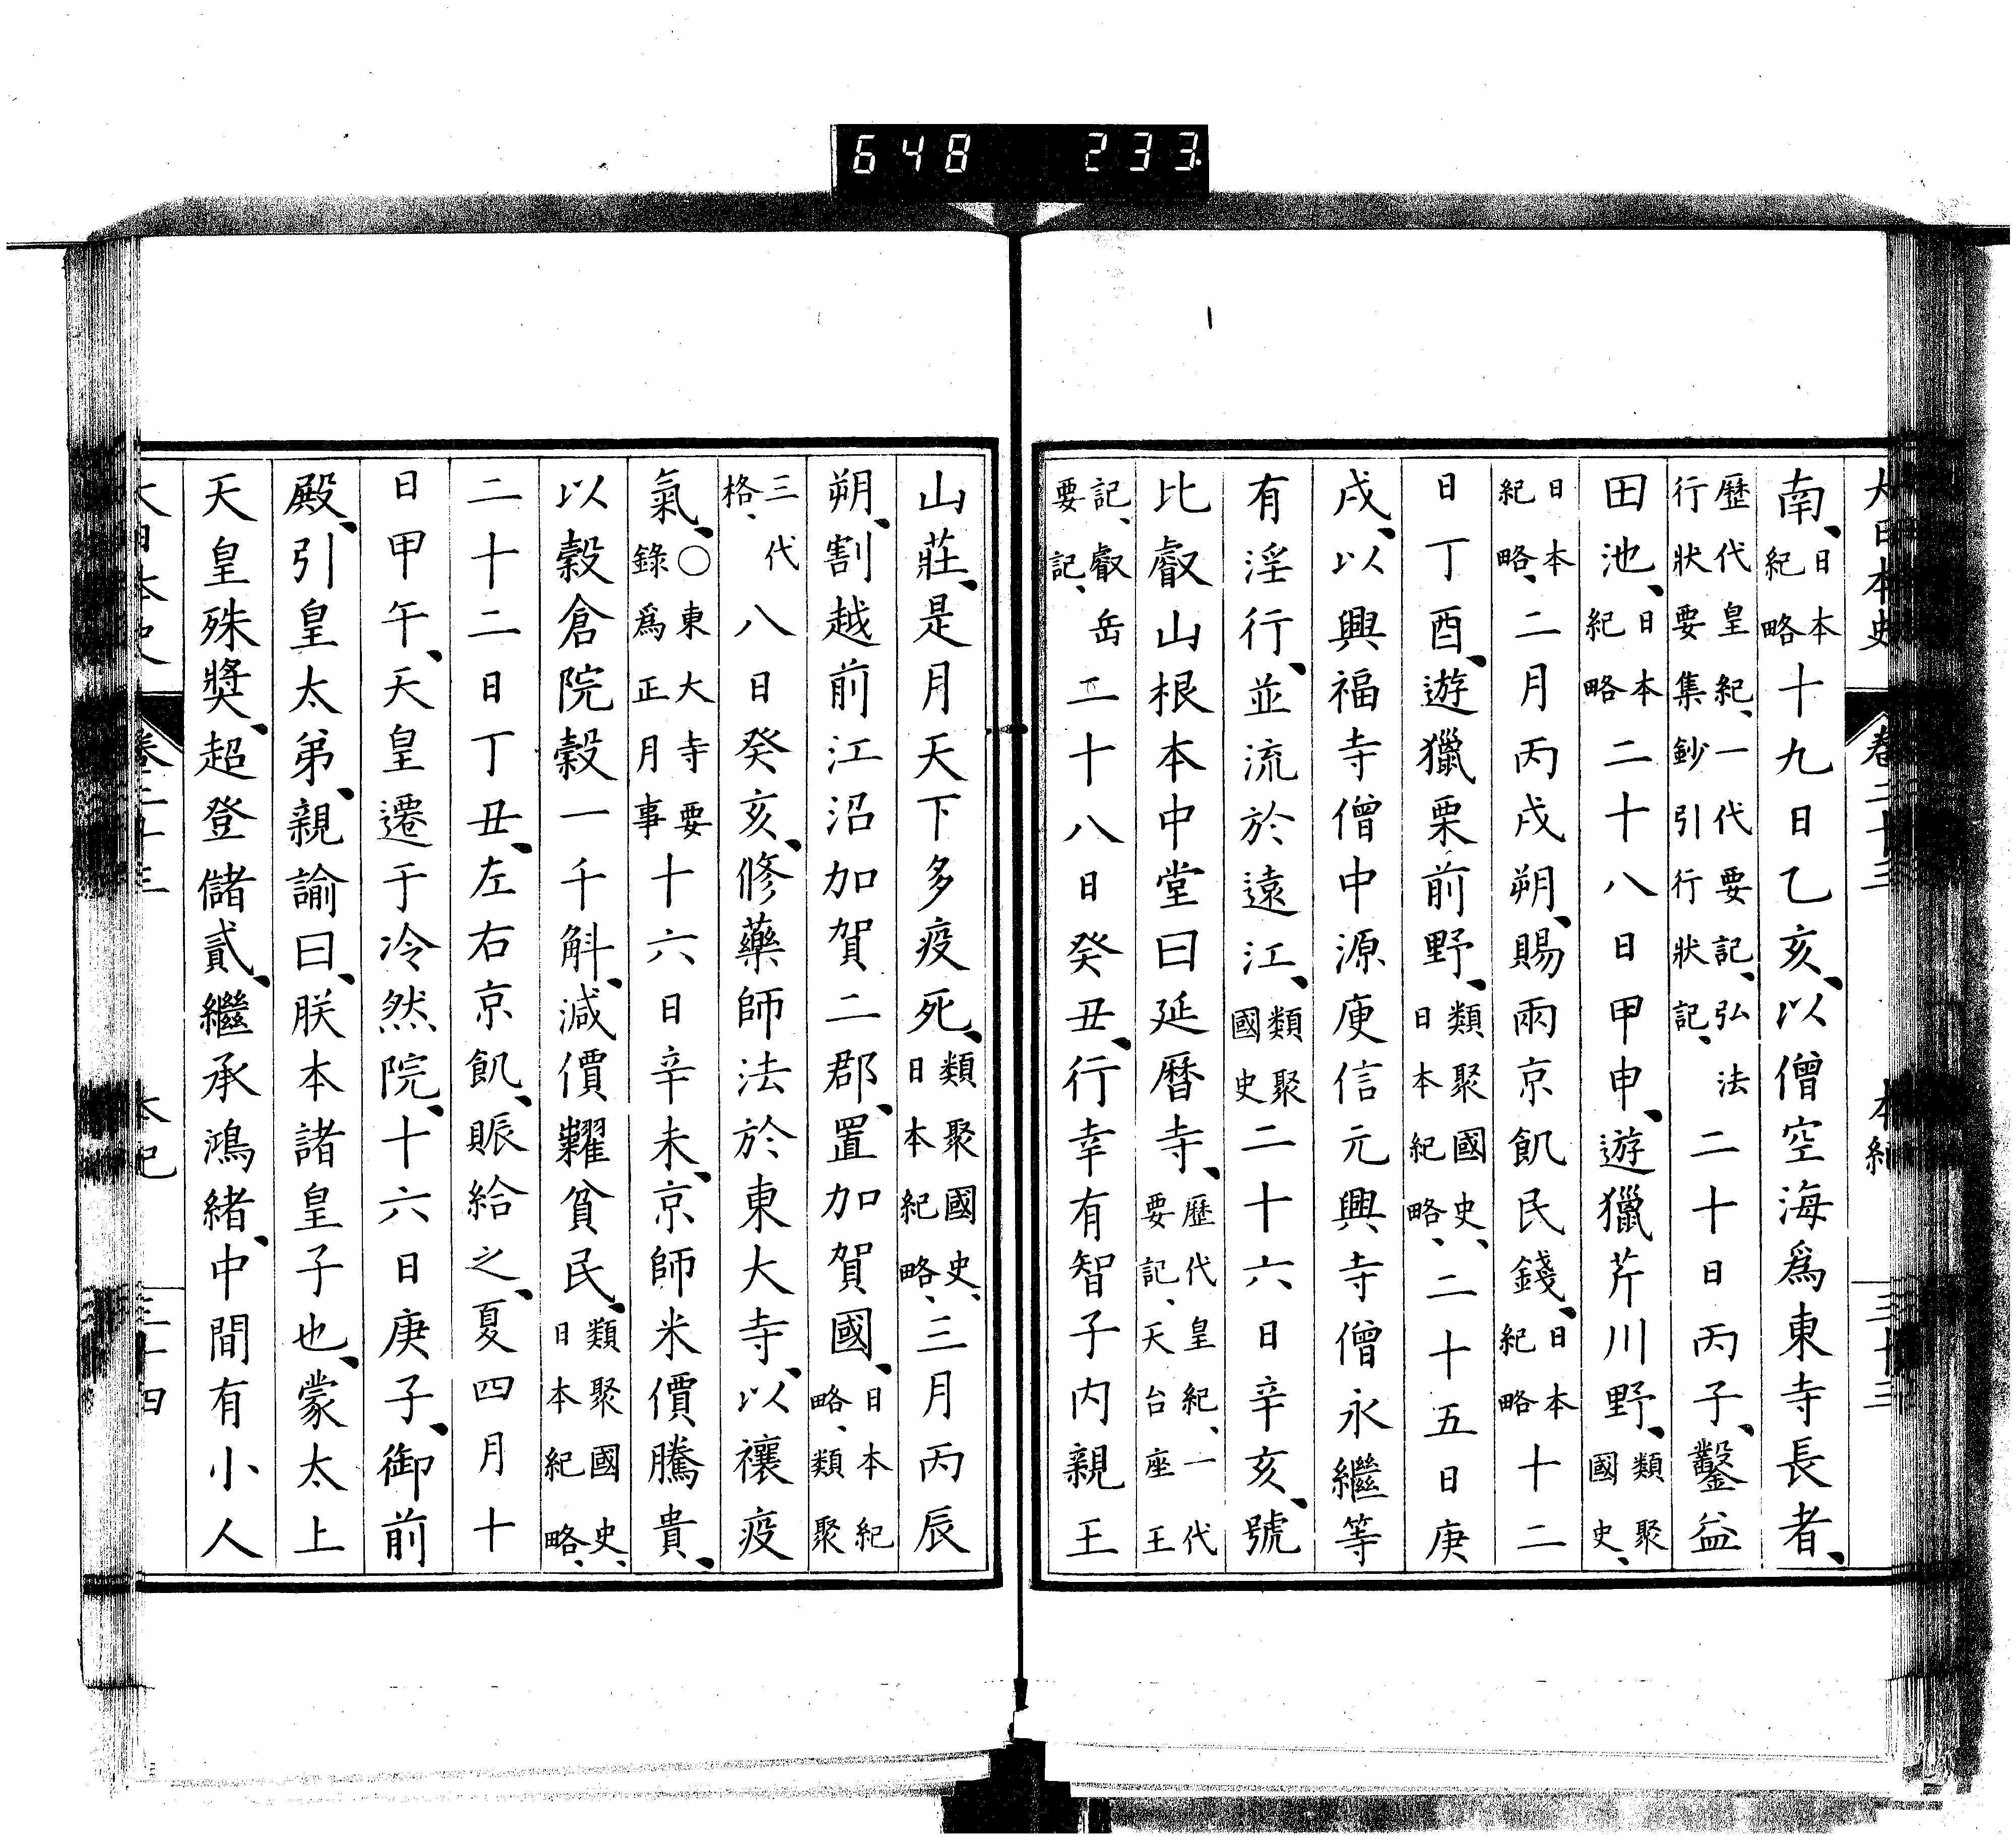 648 233
大日本史 卷二十三 本紀 三十三
南、日本紀略十九日乙亥、以僧空海爲東寺長者、
歷代皇紀、一代要記、弘法行狀要集鈔引行狀記、二十日丙子、鑿益
田池、日本紀略二十八日甲申、遊獵芹川野、類聚國史、
日本紀略、二月丙戌朔、賜兩京飢民錢、日本紀略十二
日丁酉、遊獵栗前野、類聚國史、日本紀略、二十五日庚
戌、以興福寺僧中源庚信元興寺僧永繼等
有淫行、並流於遠江、類聚國史二十六日辛亥、號
比叡山根本中堂曰延曆寺、歷代皇紀、一代要記、天台座主
記、叡岳要記、二十八日癸丑、行幸有智子内親王
山莊、是月天下多疫死、類聚國史、日本紀略、三月丙辰
朔、割越前江沼加賀二郡、置加賀國、日本紀略、類聚
三代格、八日癸亥、修藥師法於東大寺、以禳疫
氣、○東大寺要錄爲正月事十六日辛未、京師米價騰貴、
以穀倉院穀一千斛、減價糶貧民、類聚國史、日本紀略、
二十二日丁丑、左右京飢、賑給之、夏四月十
日甲午、天皇遷于冷然院、十六日庚子、御前
殿、引皇太弟、親諭曰、朕本諸皇子也、蒙太上
天皇殊奬、超登儲貳、繼承鴻緒、中間有小人
大日本史 卷二十三 本紀 三十四